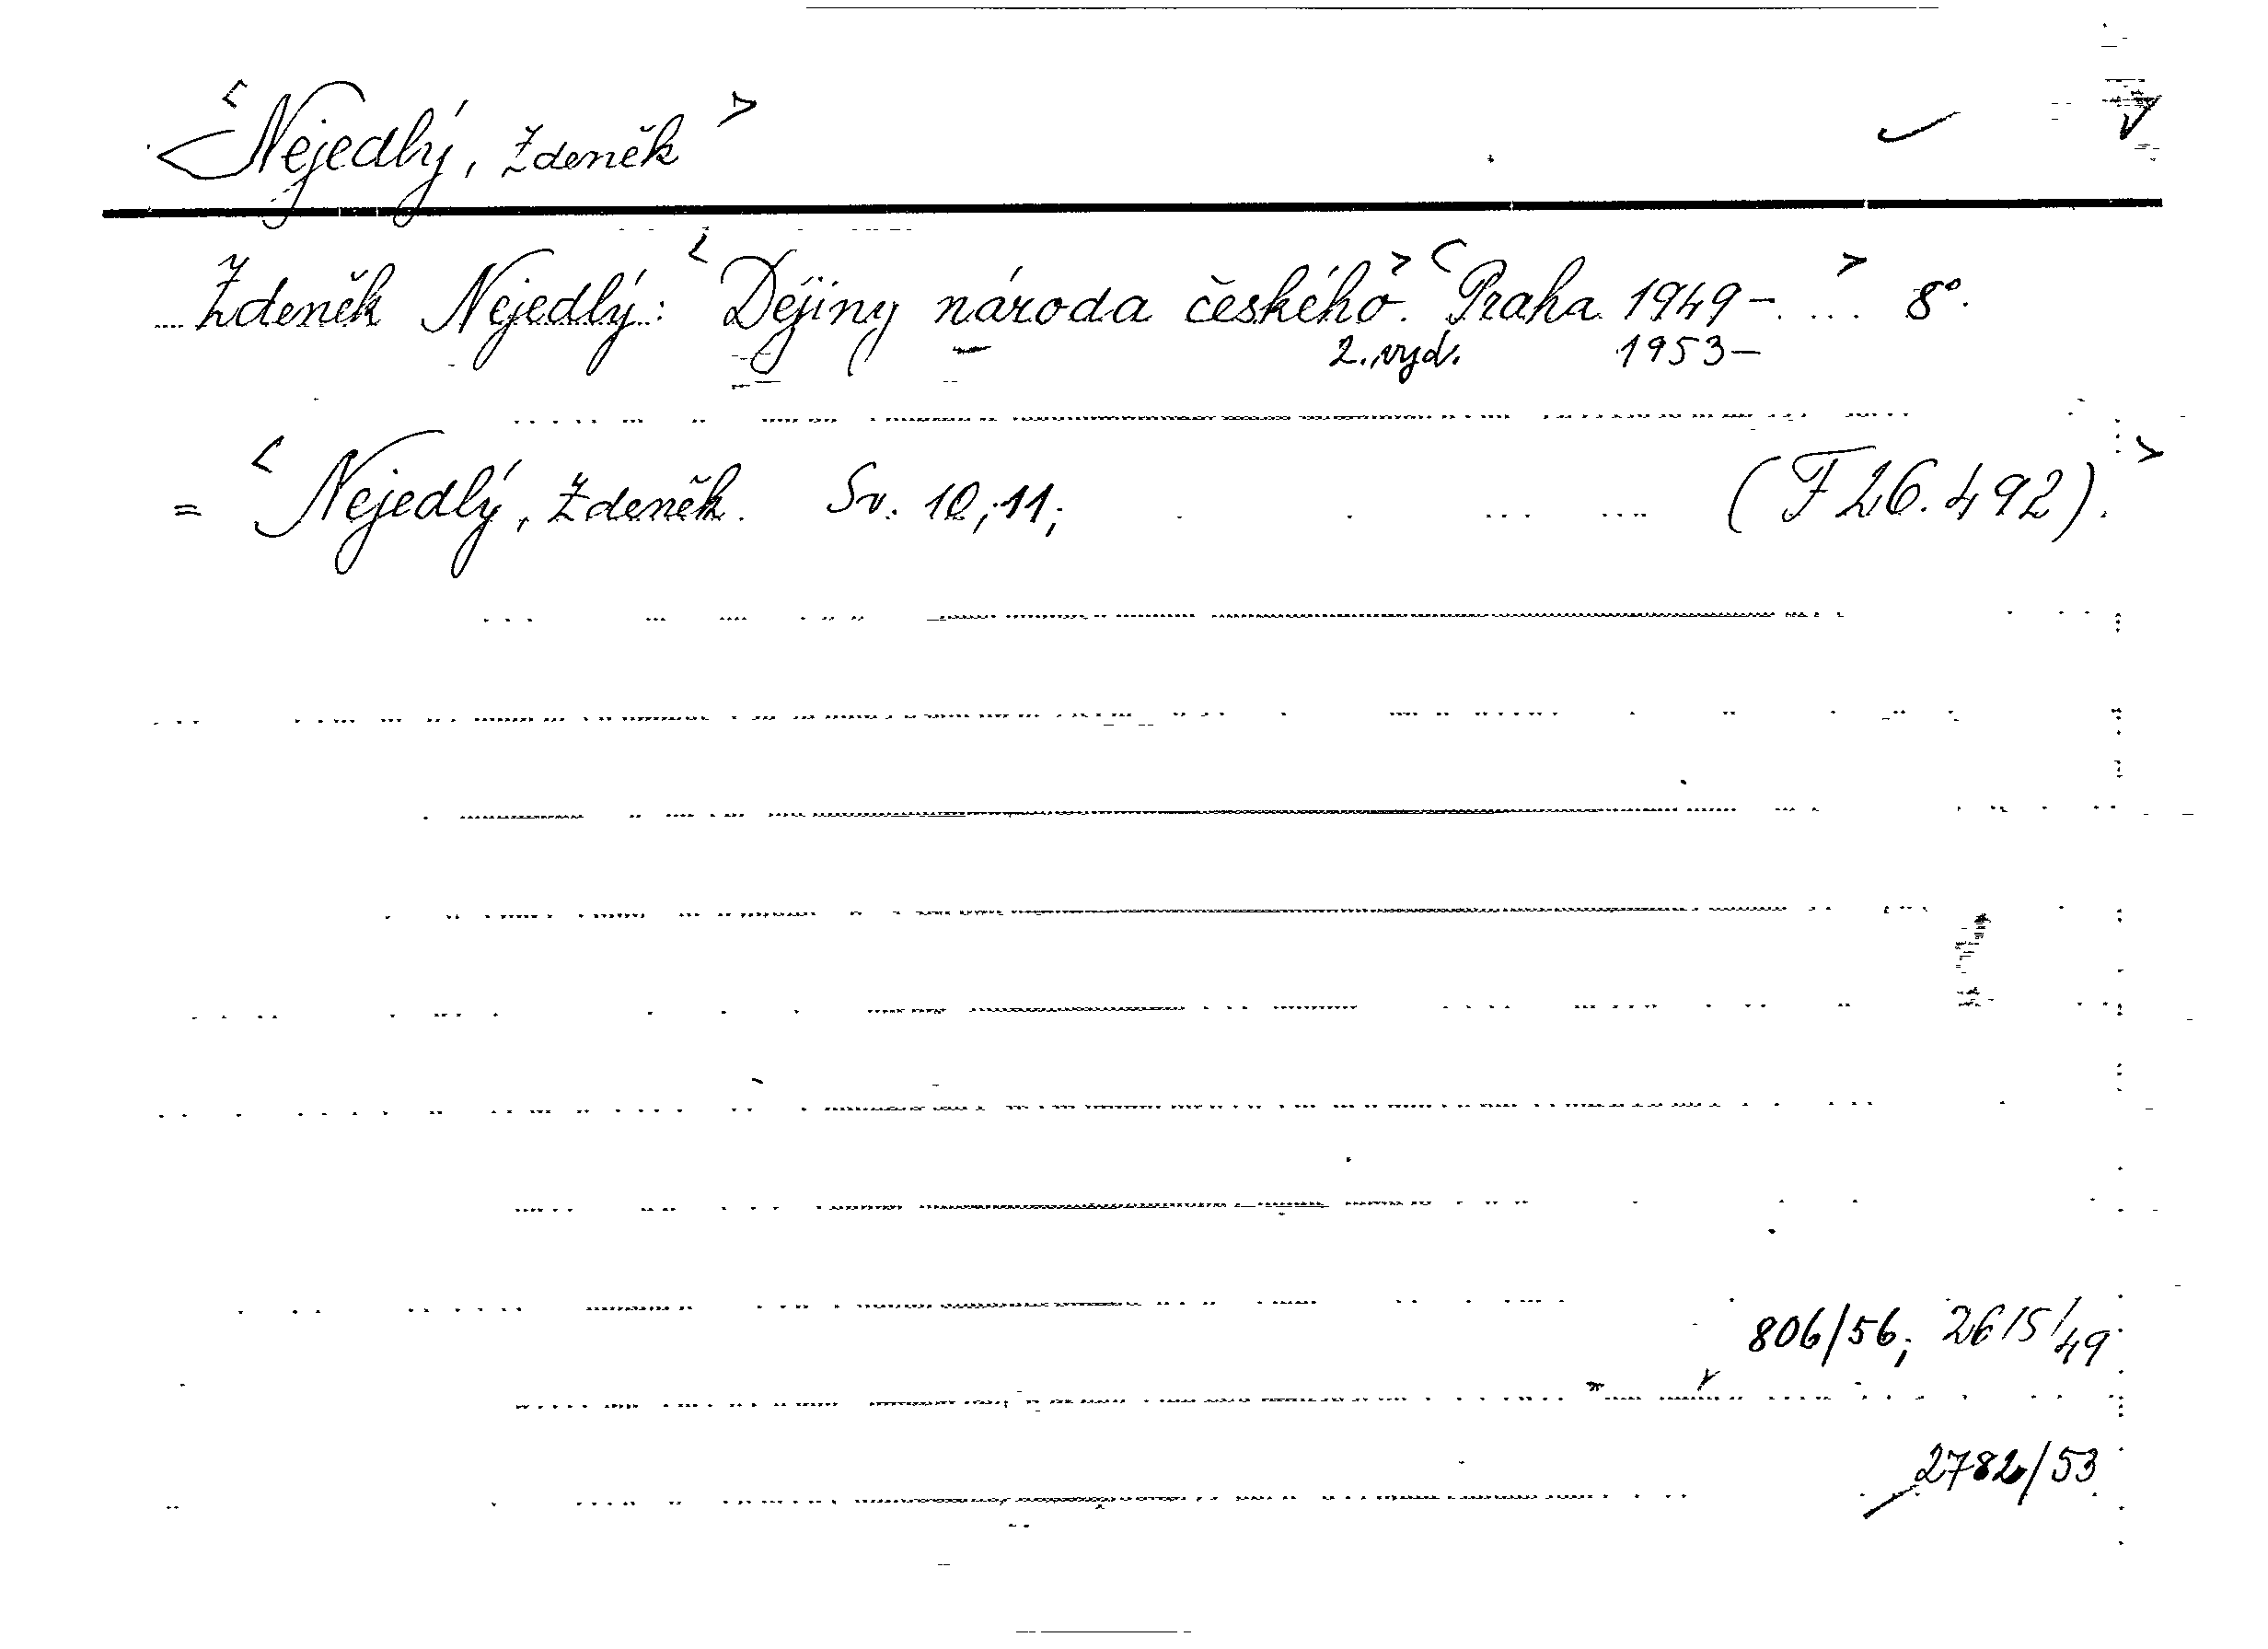 <Nejedlý, Zdeněk>
Zdeněk Nejedlý: <Dějiny národa českého.> <Praha 1949-....> 8°.
2. vyd. 1953-
= <Nejedlý, Zdeněk. Sv. 10, 11; (F 26.492).>
806/56; 2615/49
2782/53